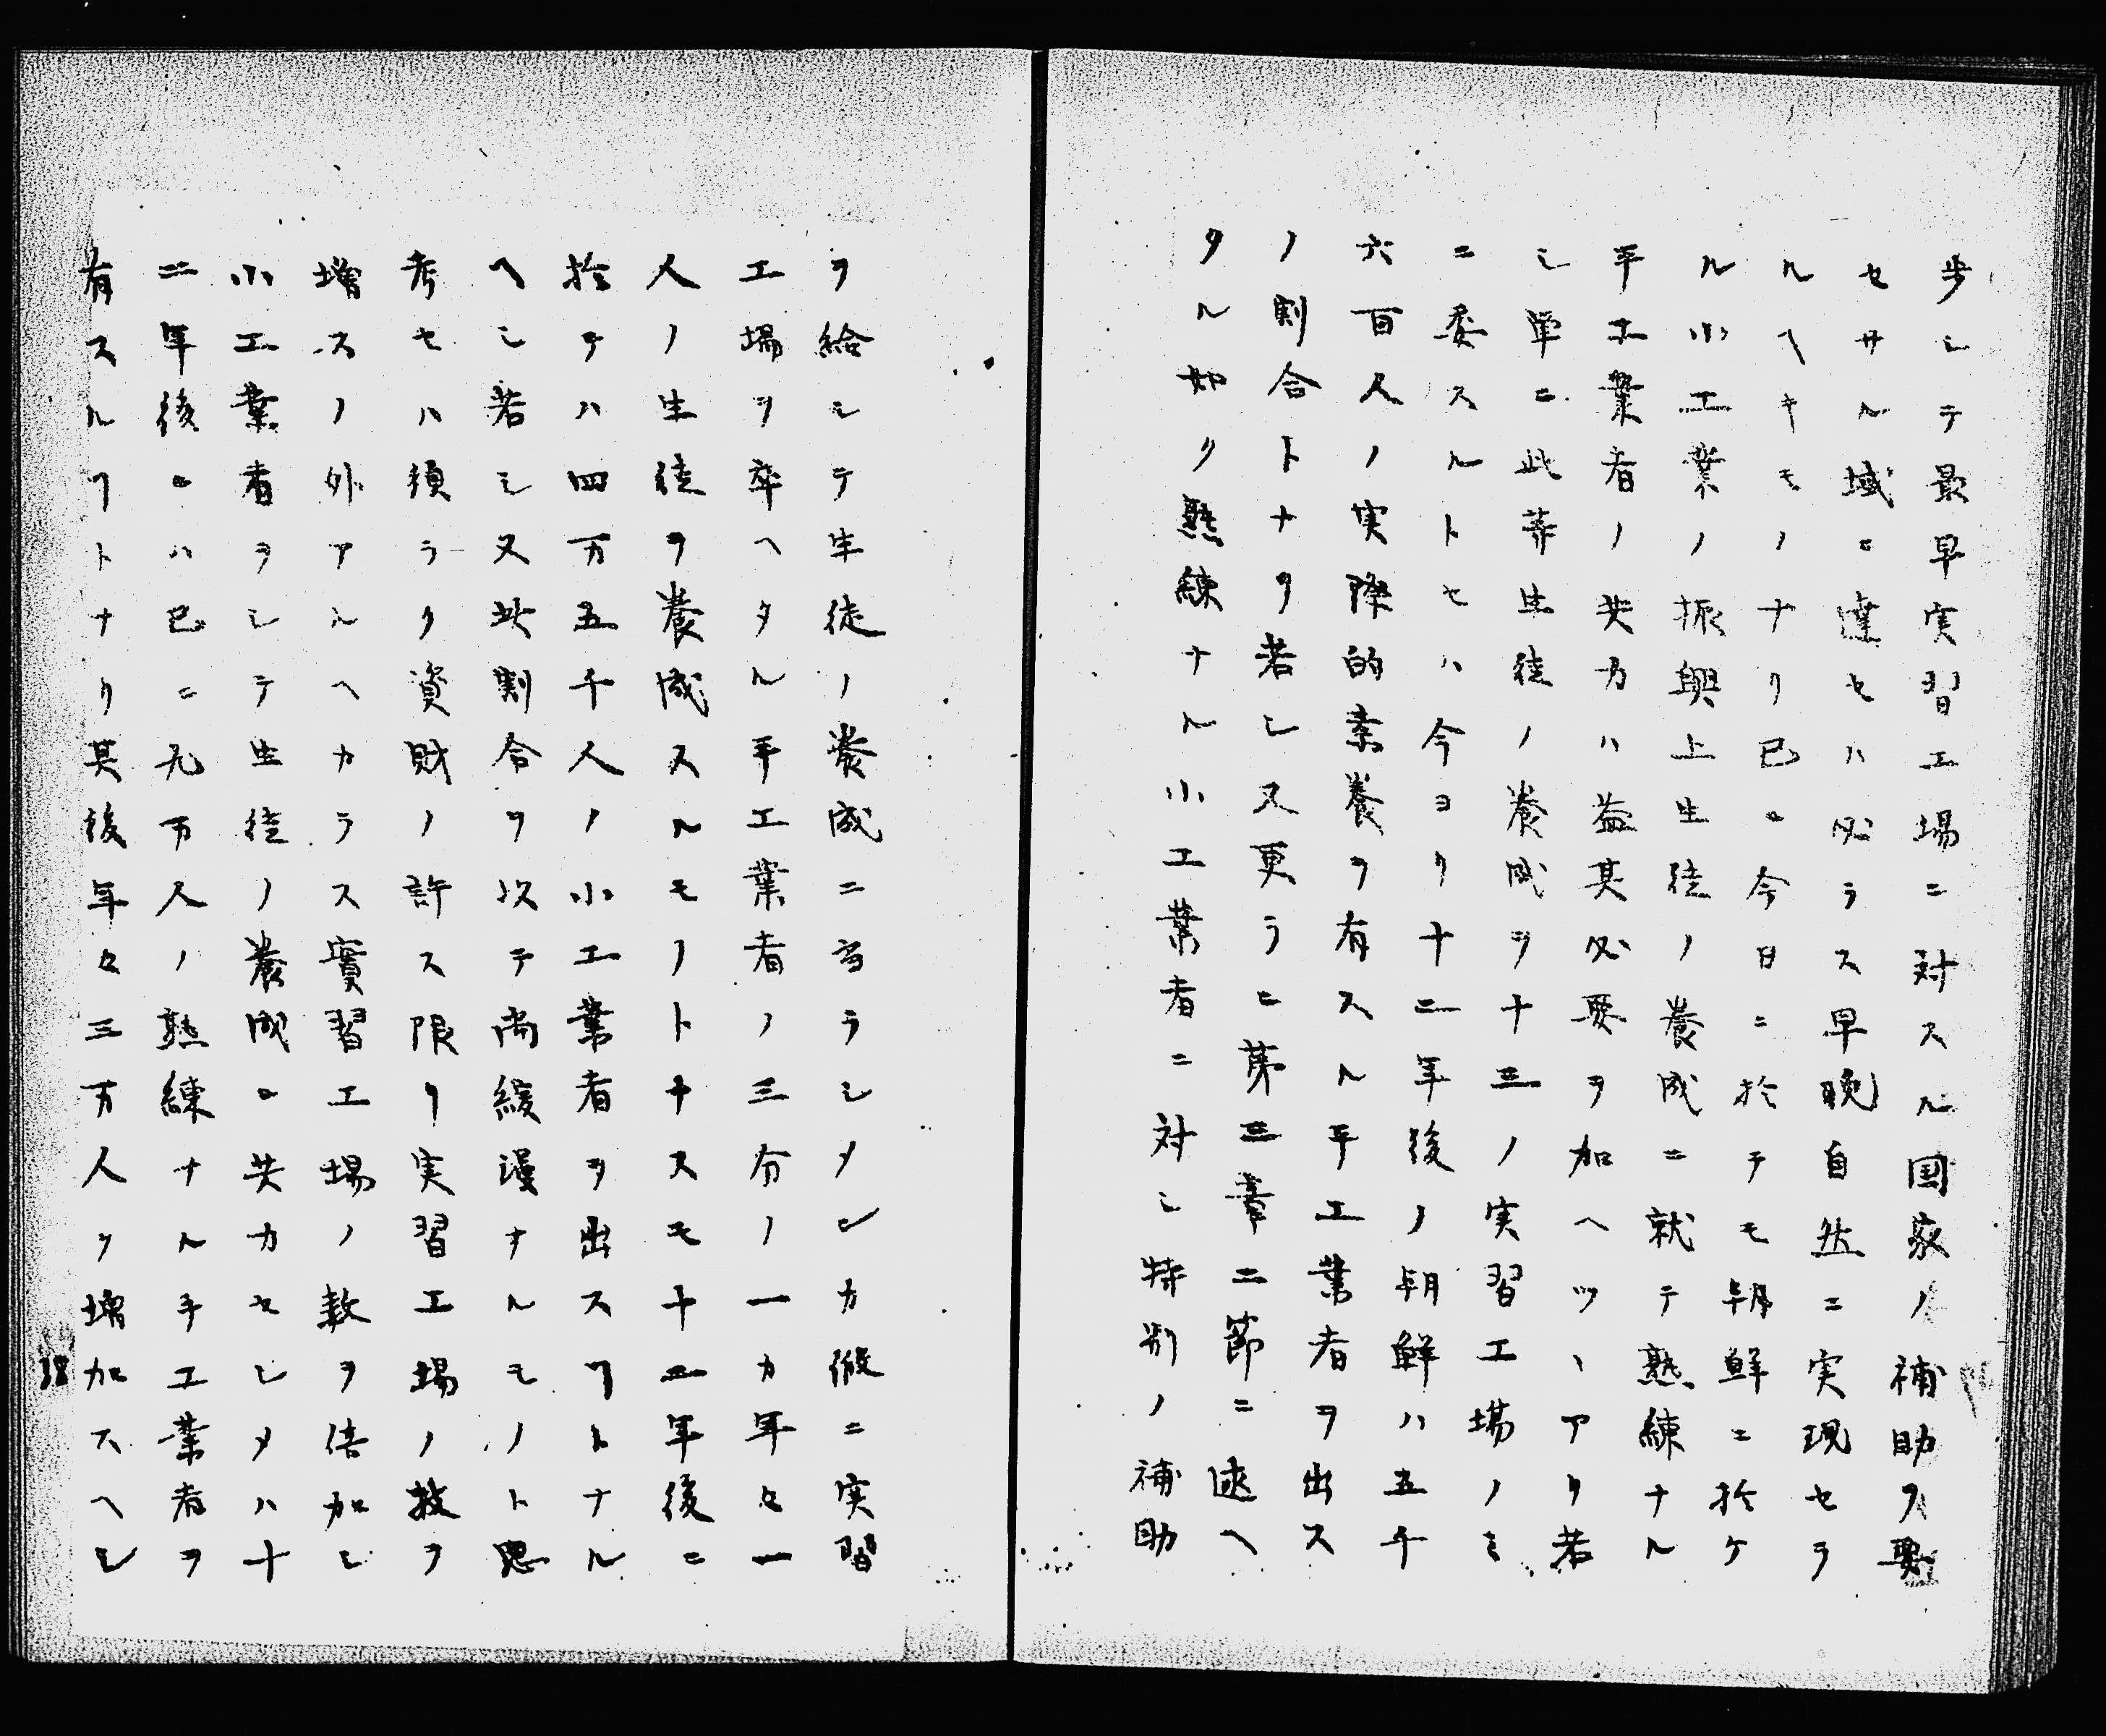 歩シテ最早実習工場ニ対スル国家ノ補助ヲ要
セサル域ニ達セハ必ラス早晩自然ニ実現セラ
ルヘキモノナリ已ニ今日ニ於テモ朝鮮ニ於ケ
ル小工業ノ振興上生徒ノ養成ニ就テ熟練ナル
手工業者ノ共力ハ益其必要ヲ加ヘツヽアリ若
シ単ニ此等生徒ノ養成ヲ十三ノ実習工場ノミ
ニ委スルトセハ今ヨリ十二年後ノ朝鮮ハ五千
六百人ノ実際的素養ヲ有スル手工業者ヲ出ス
ノ割合トナリ若シ又更ラニ第三章二節ニ述ヘ
タル如ク熟練ナル小工業者ニ対シ特別ノ補助
ヲ給シテ生徒ノ養成ニ当ラシメンカ仮ニ実習
工場ヲ卒ヘタル手工業者ノ三分ノ一カ年々一
人ノ生徒ヲ養成スルモノトナスモ十二年後ニ
於テハ四万五千人ノ小工業者ヲ出スヿトナル
ヘシ若シ又此割合ヲ以テ尚緩漫ナルモノト思
考セハ須ラク資財ノ許ス限リ実習工場ノ数ヲ
増スノ外アルヘカラス實習工場ノ数ヲ倍加シ
小工業者ヲシテ生徒ノ養成ニ共力セシメハ十
二年後ニハ已ニ九万人ノ熟練ナル手工業者ヲ
有スルヿトナリ其後年々三万人ツ増加スヘシ
38